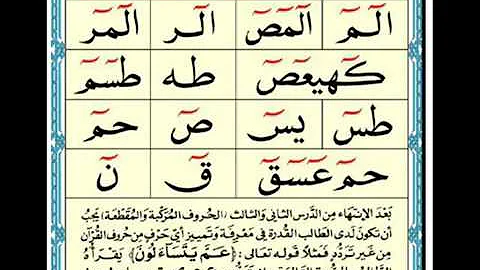 الٓمٓ الٓمٓصٓ الٓر الٓمٓر
كٓهيعٓصٓ طه طسٓمٓ
طسٓ يسٓ صٓ حمٓ
حمٓ عٓسٓقٓ قٓ نٓ
بَعْدَ الإِنْتِهَاءِ مِنَ الدَّرْسِ الثَّانِي وَالثَّالِث (الحُرُوف المُرَكَّبَة وَالمُقَطَّعَة) يَجِبُ
أَن تَكُونَ لَدَى الطَّالِب القُدرَة فِي مَعْرِفَة وَتَمْيِيز أَيِّ حَرْفٍ مِن حُرُوفِ القُرْآن
مِن غَيرِ تَرَدُّدٍ فَمَثَلاً قَولُه تَعَالَى: {عَمَّ يَتَسَاءَلُونَ} يَقْرَأُهُ